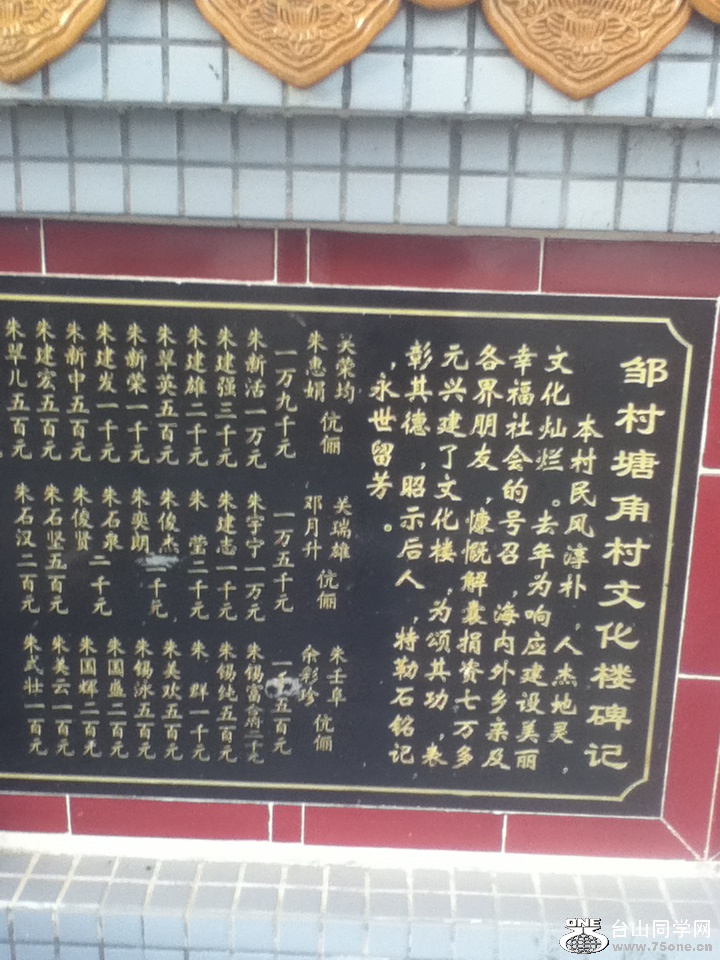 邹村塘角村文化楼碑记
本村民风淳朴，人杰地灵，
文化灿烂。去年为响应建设美丽
幸福社会的号召，海内外乡亲及
各界朋友，慷慨解囊捐资七万多
元兴建了文化楼，为颂其功，表
彰其德，昭示后人，特勒石铭记
，永世留芳。
关荣均 关瑞雄 朱壬阜
朱惠娟 伉俪 邓月升 伉俪 余彩珍 伉俪
一万九千元 一万五千元 五百元
朱新活一万元 朱宇宁一万元 朱锡富
朱建强三千元 朱建志一千元 朱锡纯五百元
朱建雄二千元 朱莹二千元 朱群一千元
朱翠英五百元 朱俊杰 朱美欢五百元
朱新荣一千元 朱奕朗一千元 朱锡泳五百元
朱建发一千元 朱石泉二千元 朱国盛二百元
朱新中五百元 朱俊贤 朱国辉二百元
朱建宏五百元 朱石坚五百元 朱美云一百元
朱翠儿五百元 朱石汉二百元 朱武壮一百元
ONE
台山同学网
www.75one.cn